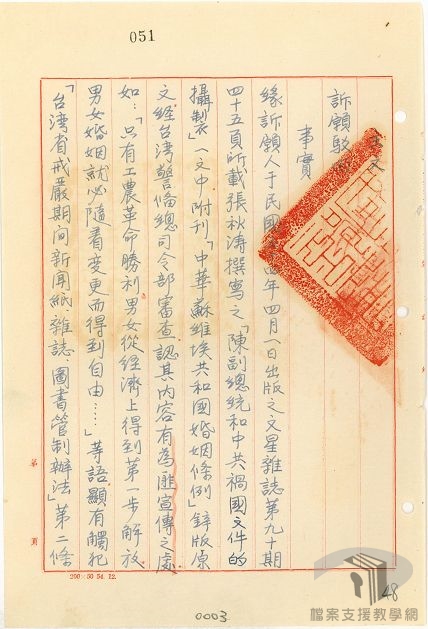 051
主文
訴願駁
事實
緣訴願人于民國十四年四月一日出版之文星雜誌第九十期
四十五頁所載張秋濤撰寫之「陳副總統和中共禍國文件的
攝製」一文中附刊「中華蘇維埃共和國婚姻條例」鋅版原
文經台湾警偹總司令部審查認其内容有為匪宣傳之處
如:「只有工農革命勝利男女從經濟上得到第一步解放
男女婚姻就必隨着變更而得到自由……」等語顯有觸犯
「台湾省戒嚴期间新聞紙、雜誌、圖書管制辦法」第二條
第 頁
200×50 54. 12.
48
0003
檔案支援教學網